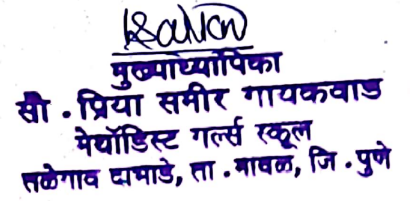 मुख्याध्यापिका
सौ. प्रिया समीर गायकवाड
मेथॉडिस्ट गर्ल्स स्कूल
तळेगाव दाभाडे, ता. मावळ, जि. पुणे